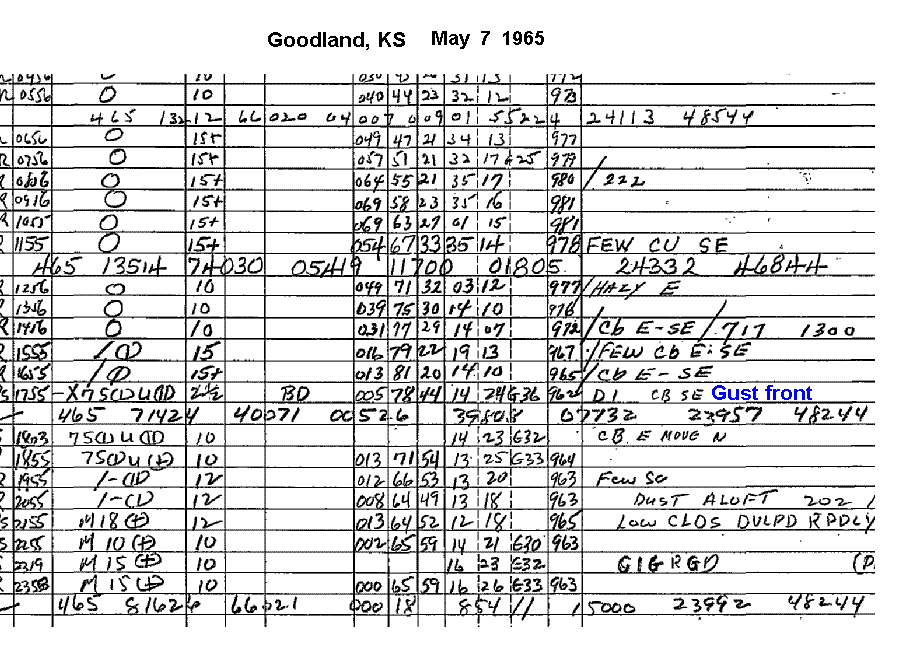 Goodland, KS May 7 1965
0556 O 10 040 44 23 32 12 973
465 13212 66020 04 007 0901 55224 24113 48544
0656 O 15+ 049 47 21 34 13 977
R 0756 O 15+ 057 51 21 32 17 +25 979 /
R O 15+ 064 55 21 35 17 980 / 222
R 0916 O 15+ 069 58 23 35 16 981
R 1055 O 15+ 069 63 27 01 15 981
R 1155 O 15+ 054 67 33 35 14 978 FEW CU SE
465 13514 74030 05419 11700 01805 24332 46844
R 1256 O 10 049 71 32 03 12 977 /HAZY E
R 1356 O 10 039 75 30 14 10 976 /
R 1456 O 10 031 77 29 14 07 972 /Cb E-SE /717 1300
R 1555 /⦶ 15 016 79 22 19 13 967 /FEW Cb E-SE
R 1655 /⦶ 15+ 013 81 20 14 10 965 /Cb E-SE
S 1755 -X75⦶U⦶ 2½ BD 005 78 44 14 24 G36 962 D1 CB SE Gust front
465 71424 40071 00526 39808 07732 23957 48244
1803 75⦶U⦶ 10 14 23 G32 CB E MOVE N
1855 75⦶U⊕ 10 013 71 54 13 25 G33 964
R 1955 /-⦶ 12 012 66 53 13 20 963 Few Sc
R 2055 /-⦶ 12 008 64 49 13 18 963 DUST ALOFT 202 /
S 2155 M18⊕ 12 013 64 52 12 18 965 Low CLDS DVLPD RPDLY
2255 M10⊕ 10 002 65 59 14 21 G30 963
S 2319 M15⊕ 10 16 23 G32 CIG RGD
R 2358 M15⊕ 10 000 65 59 16 26 G33 963
465 81626 66021 000 18 854// 15000 23992 48244